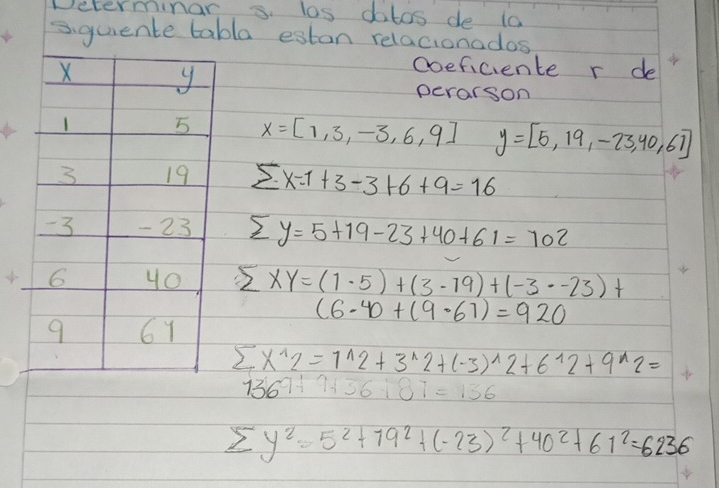 Determinar si los datos de la
siguiente tabla estan relacionados
Coeficiente r de
perarson
x y
1 5
3 19
-3 -23
6 40
9 61
x=[1,3,-3,6,9] y=[5,19,-23,40,61]
Σx=1+3-3+6+9=16
Σy=5+19-23+40+61=102
ΣXY=(1·5)+(3-19)+(-3·-23)+
(6-40+(9·61)=920
ΣX^2=1^2+3^2+(-3)^2+6^2+9^2=
136 9+9+36+81=136
Σy²=5²+19²+(-23)²+40²+61²=6236